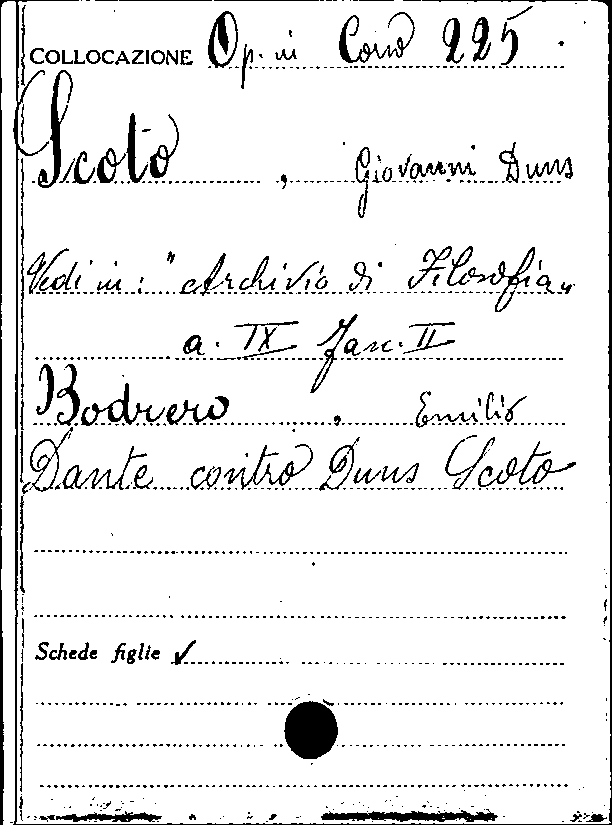 COLLOCAZIONE Op. in Corso 225.
Scoto, Giovanni Duns
Vedi in: "Archivio di Filosofia„
a. IX fasc. II
Bodrero, Emilio
Dante contro Duns Scoto
Schede figlie ✓